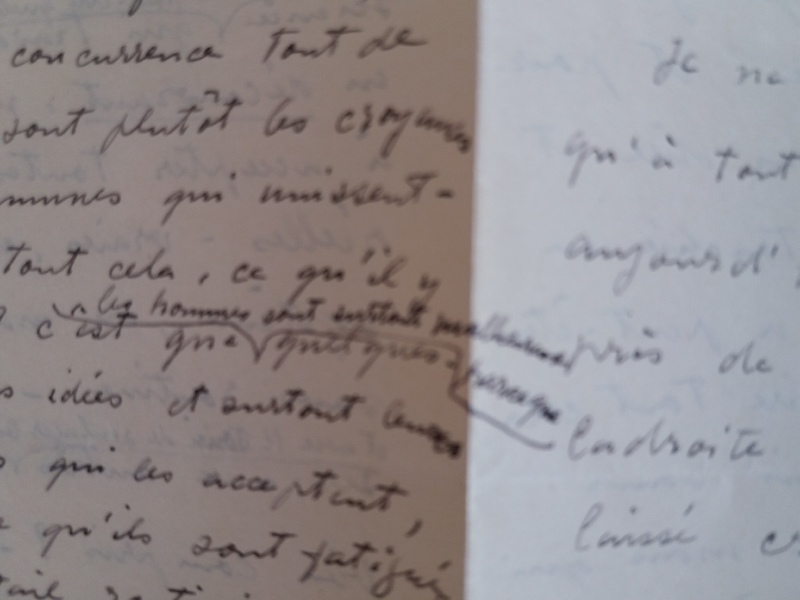 concurrence tout de
sont plutôt les croyances
qui unissent-
tout cela, ce qu'il y
les hommes sont surtout malheureux
c'est que quelques-
presque
idées et surtout
qui les acceptent,
qu'ils sont fatigués
Je ne
qu'à tout
aujourd'
près de
la droite
laissé